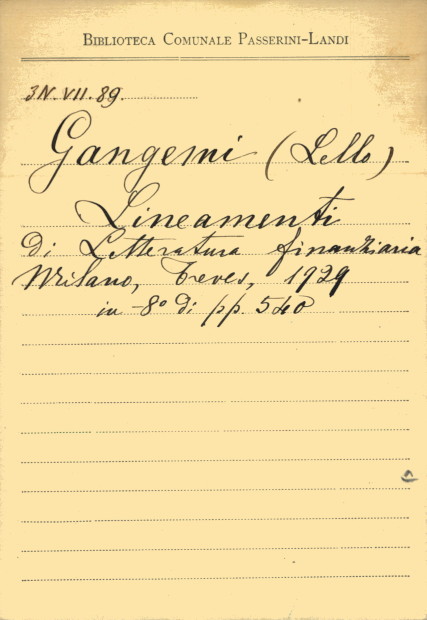 BIBLIOTECA COMUNALE PASSERINI-LANDI
3N.VII.89.
Gangemi (Lello)
Lineamenti
di Letteratura finanziaria
Milano, Treves, 1929
in -8º di pp. 540